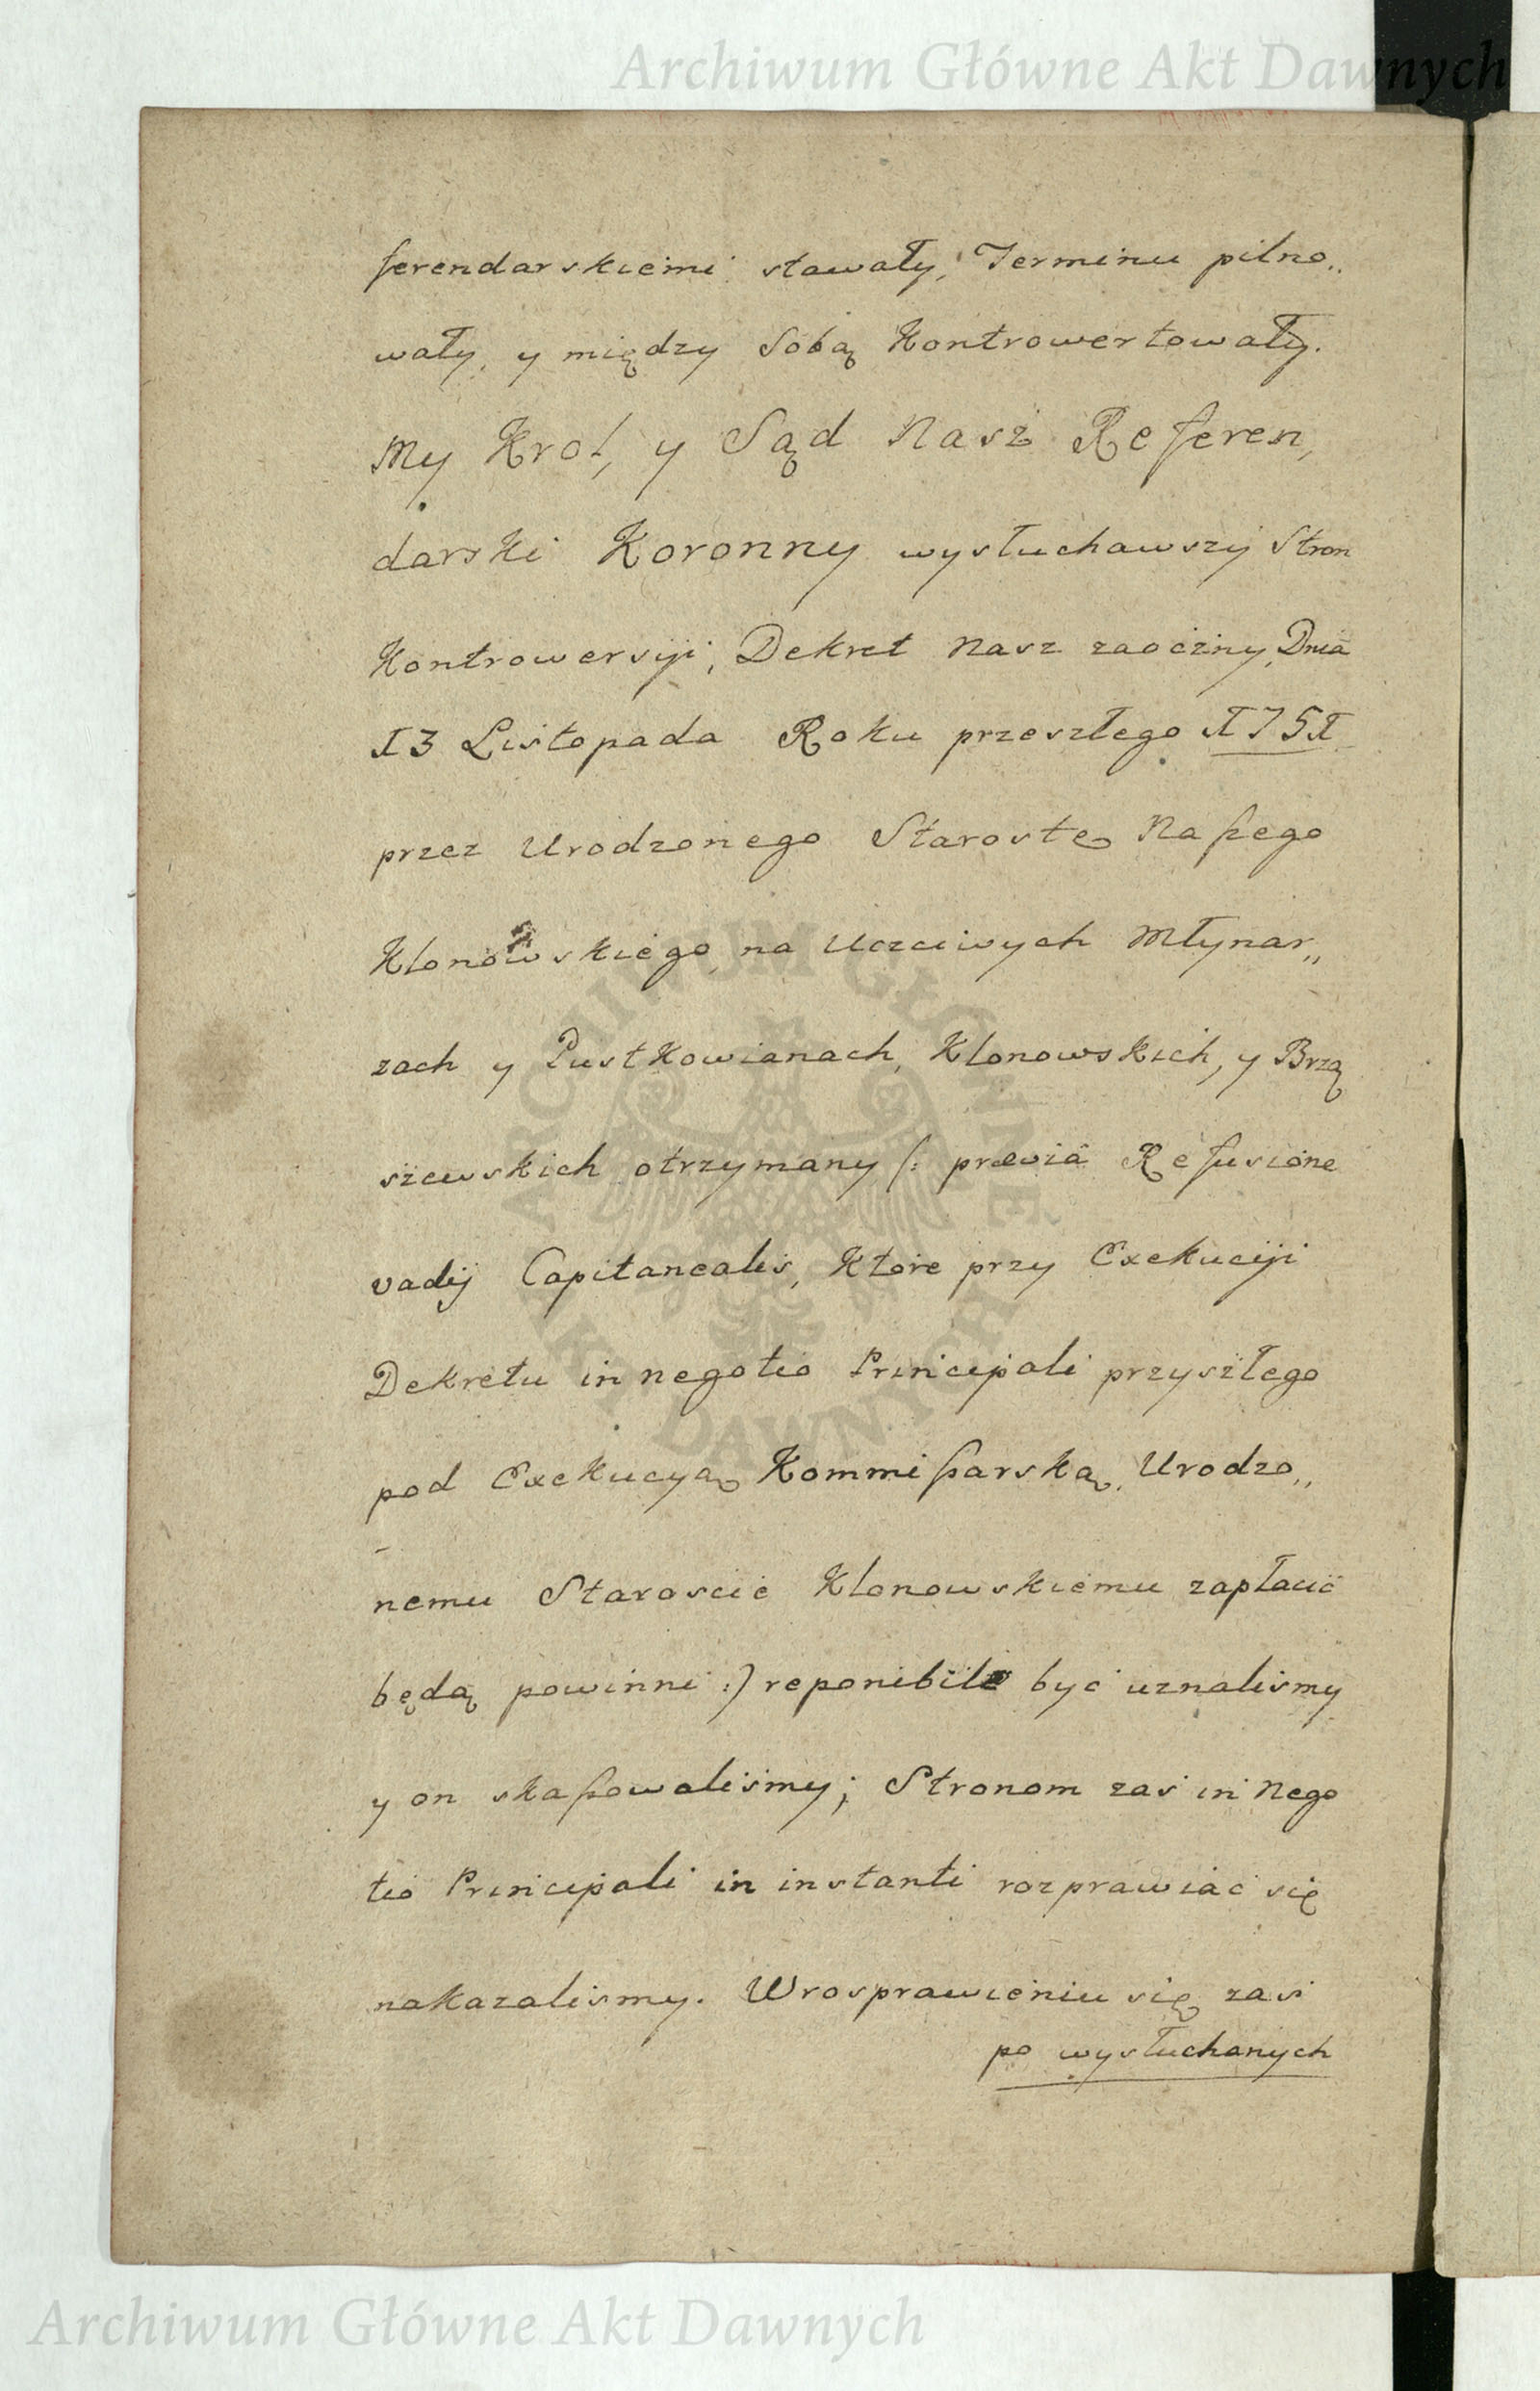 Archiwum Główne Akt Dawnych
ferendarskiemi stawały, Terminu pilno„
wały, y między Sobą Kontrowertowały.
My Krol, y Sąd Nasz Referen,
darski Koronny wysłuchawszy Stron
Kontrowersyi, Dekret Nasz zaoczny, Dnia
13 Listopada Roku przeszłego 1751
przez Urodzonego Starostę Naßego
Klonowskiego, na Uczciwych Młynar„
zach y Pustkowianach, Klonowskich, y Brzą
szewskich otrzymany /: prævia Refusione
vadij Capitanealis, Ktore przy Exekucyi
Dekretu in negotio Principali przyszłego
pod Exekucyą Kommißarską, Urodzo„
nemu Staroscie Klonowskiemu zapłacić
będą powinni :/ reponibile być uznalismy
y on skaßowalismy; Stronom zaś in Nego
tio Principali in instanti rozprawiać się
nakazalismy. W rosprawieniu się zaś
po wysłuchanych
ARCHIWUM GŁÓWNE AKT DAWNYCH
Archiwum Główne Akt Dawnych